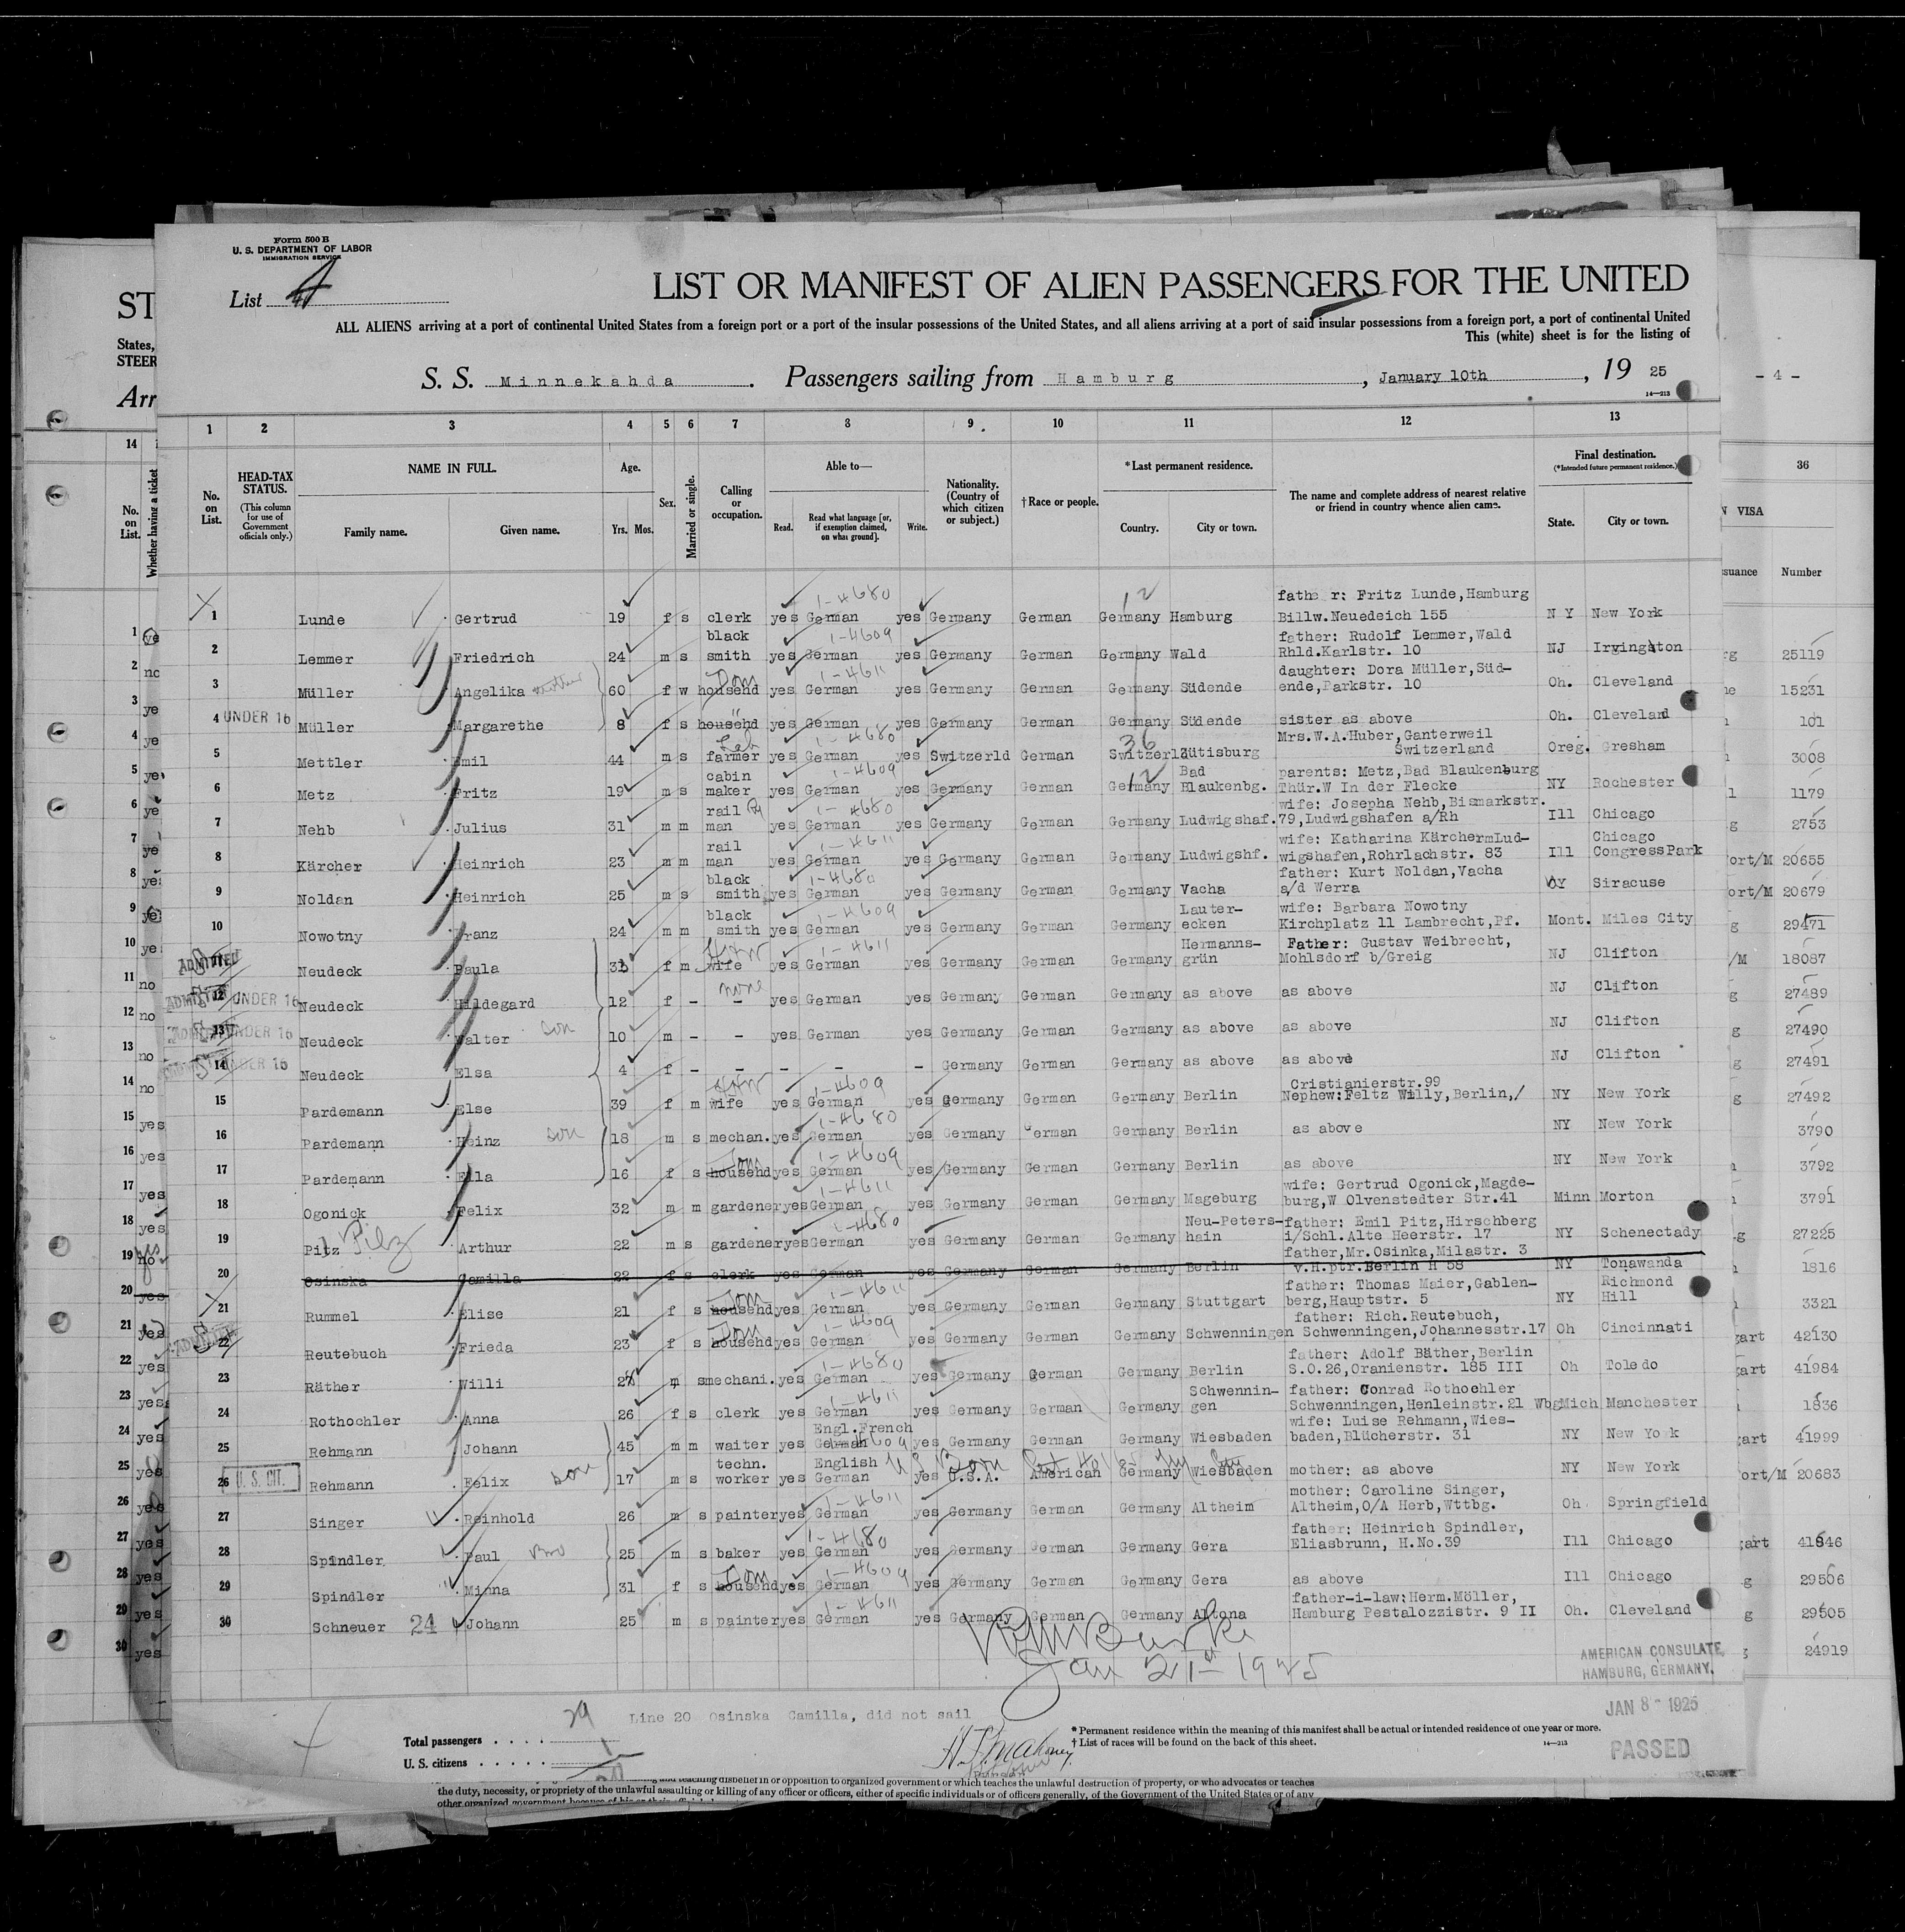 Form 500 B
U. S. DEPARTMENT OF LABOR
IMMIGRATION SERVICE
List
LIST OR MANIFEST OF ALIEN PASSENGERS FOR THE UNITED
ALL ALIENS arriving at a port of continental United States from a foreign port or a port of the insular possessions of the United States, and all aliens arriving at a port of said insular possessions from a foreign port, a port of continental United
This (white) sheet is for the listing of
S. S. Minnekahda. Passengers sailing from Hamburg, January 10th, 19 25
14—213
ST
States,
STEER
Arr
- 4 -
1 2 3 4 5 6 7 8 9 10 11 12 13
14
36
No. on List.
HEAD-TAX STATUS. (This column for use of Government officials only.)
NAME IN FULL. Family name. Given name.
Age. Yrs. Mos.
Sex.
Married or single.
Calling or occupation.
Able to— Read. Read what language [or, if exemption claimed, on what ground]. Write.
Nationality. (Country of which citizen or subject.)
†Race or people.
*Last permanent residence. Country. City or town.
The name and complete address of nearest relative or friend in country whence alien came.
Final destination. (*Intended future permanent residence.) State. City or town.
No. on List.
Whether having a ticket
VISA
Number
1 Lunde Gertrud 19 f s clerk yes German 1-4680 yes Germany German Germany Hamburg father: Fritz Lunde,Hamburg Billw.Neuedeich 155 N Y New York
2 Lemmer Friedrich 24 m s black smith yes German 1-4609 yes Germany German Germany Wald father: Rudolf Lemmer,Wald Rhld.Karlstr. 10 NJ Irvington 25119
3 Müller Angelika mother 60 f w househd Dom yes German 1-4611 yes Germany German Germany Südende daughter: Dora Müller,Süd- ende,Parkstr. 10 Oh. Cleveland 15231
4 UNDER 16 Müller Margarethe 8 f s househd yes German yes Germany German Germany Südende sister as above Oh. Cleveland 101
5 Mettler Emil 44 m s farmer Lab yes German 1-4680 yes Switzerld German Switzerl. Lütisburg Mrs.W.A.Huber,Ganterweil Switzerland Oreg. Gresham 3008
6 Metz Fritz 19 m s cabin maker yes German 1-4609 yes Germany German Germany Bad Blaukenbg. parents: Metz,Bad Blaukenburg Thür.W In der Flecke NY Rochester 1179
7 Nehb Julius 31 m m rail man yes German 1-4680 yes Germany German Germany Ludwigshaf. wife: Josepha Nehb,Bismarkstr. 79,Ludwigshafen a/Rh Ill Chicago 2753
8 Kärcher Heinrich 23 m m rail man yes German 1-4611 yes Germany German Germany Ludwigshf. wife: Katharina KärchermLud- wigshafen,Rohrlachstr. 83 Ill Chicago CongressPark 20655
9 Noldan Heinrich 25 m s black smith yes German 1-4680 yes Germany German Germany Vacha father: Kurt Noldan,Vacha a/d Werra NY Siracuse 20679
10 Nowotny Franz 24 m m black smith yes German 1-4609 yes Germany German Germany Lauter- ecken wife: Barbara Nowotny Kirchplatz 11 Lambrecht,Pf. Mont. Miles City 29471
11 ADMITTED Neudeck Paula f m wife yes German 1-4611 yes Germany German Germany Hermanns- grün Father: Gustav Weibrecht, Mohlsdorf b/Greig NJ Clifton 18087
12 ADMITTED UNDER 16 Neudeck Hildegard 12 f - - none yes German yes Germany German Germany as above as above NJ Clifton 27489
13 ADMITTED UNDER 16 Neudeck Walter son 10 m - - yes German yes Germany German Germany as above as above NJ Clifton 27490
14 ADMITTED UNDER 16 Neudeck Elsa 4 f - - - - - Germany German Germany as above as above NJ Clifton 27491
15 Pardemann Else 39 f m wife yes German 1-4609 yes Germany German Germany Berlin Cristianierstr.99 Nephew:Feltz Willy,Berlin,/ NY New York 27492
16 Pardemann Heinz son 18 m s mechan. yes German 1-4680 yes Germany German Germany Berlin as above NY New York 3790
17 Pardemann Ella 16 f s househd Dom yes German 1-4609 yes Germany German Germany Berlin as above NY New York 3792
18 Ogonick Felix 32 m m gardener yes German 1-4611 yes Germany German Germany Mageburg wife: Gertrud Ogonick,Magde- burg,W Olvenstedter Str.41 Minn Morton 3791
19 Pitz Pilz Arthur 22 m s gardener yes German 1-4680 yes Germany German Germany Neu-Peters- hain father: Emil Pitz,Hirschberg i/Schl.Alte Heerstr. 17 NY Schenectady 27225
20 Osinska Camilla 22 f s clerk yes German yes Germany German Germany Berlin father,Mr.Osinka,Milastr. 3 v.H.ptr.Berlin H 58 NY Tonawanda 1816
21 Rummel Elise 21 f s househd Dom yes German 1-4611 yes Germany German Germany Stuttgart father: Thomas Maier,Gablen- berg,Hauptstr. 5 NY Richmond Hill 3321
22 ADMITTED Reutebuch Frieda 23 f s househd Dom yes German 1-4609 yes Germany German Germany Schwenningen father: Rich.Reutebuch, Schwenningen,Johannesstr.17 Oh Cincinnati 42130
23 Räther Willi m s mechani. yes German 1-4680 yes Germany German Germany Berlin father: Adolf Bäther,Berlin S.O.26,Oranienstr. 185 III Oh Toledo 41984
24 Rothochler Anna 26 f s clerk yes German 1-4611 yes Germany German Germany Schwennin- gen father: Conrad Rothochler Schwenningen,Henleinstr.21 Wbg Mich Manchester 1836
25 Rehmann Johann 45 m m waiter yes Engl.French German 4609 yes Germany German Germany Wiesbaden wife: Luise Rehmann,Wies- baden,Blücherstr. 31 NY New York 41999
26 U. S. CIT. Rehmann Felix son 17 m s techn. worker yes English German US Born yes U.S.A. American Germany Wiesbaden mother: as above NY New York 20683
27 Singer Reinhold 26 m s painter yes German 1-4611 yes Germany German Germany Altheim mother: Caroline Singer, Altheim,O/A Herb,Wttbg. Oh. Springfield
28 Spindler Paul Bro 25 m s baker yes German 1-4680 yes Germany German Germany Gera father: Heinrich Spindler, Eliasbrunn, H.No.39 Ill Chicago 41846
29 Spindler Minna 31 f s househd Dom yes German 1-4609 yes Germany German Germany Gera as above Ill Chicago 29506
30 Schneuer 24 Johann 25 m s painter yes German 1-4611 yes Germany German Germany Altona father-i-law:Herm.Möller, Hamburg Pestalozzistr. 9 II Oh. Cleveland 29505
24919
Jan 21st 1925
AMERICAN CONSULATE
HAMBURG, GERMANY.
JAN 8 - 1925
PASSED
29 Line 20 Osinska Camilla, did not sail
Total passengers . . . .
U. S. citizens . . . . . 1
* Permanent residence within the meaning of this manifest shall be actual or intended residence of one year or more.
† List of races will be found on the back of this sheet.
14—213
the duty, necessity, or propriety of the unlawful assaulting or killing of any officer or officers, either of specific individuals or of officers generally, of the Government of the United States or of any